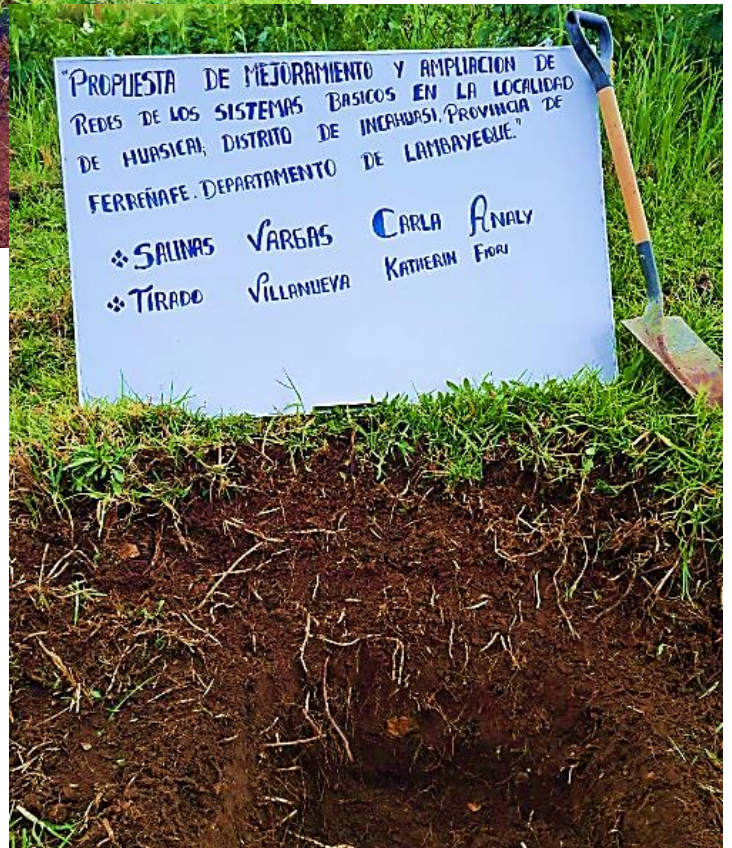 "PROPUESTA DE MEJORAMIENTO Y AMPLIACION DE
REDES DE LOS SISTEMAS BASICOS EN LA LOCALIDAD
DE HUASICAJ, DISTRITO DE INCAHUASI, PROVINCIA DE
FERREÑAFE. DEPARTAMENTO DE LAMBAYEQUE."
❖ SALINAS VARGAS CARLA ANALY
❖ TIRADO VILLANUEVA KATHERIN FIORI